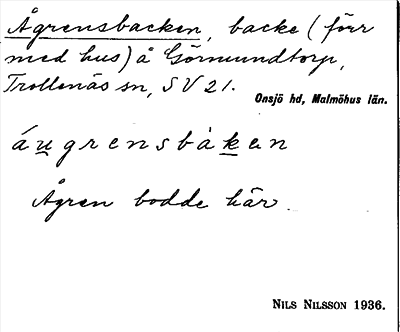 Ågrensbacken, backe (förr
med hus) å Görmundtorp,
Trollenäs sn, SV 21.
Onsjö hd, Malmöhus län.
áu̲grensbàk̲en
Ågren bodde här.
NILS NILSSON 1936.